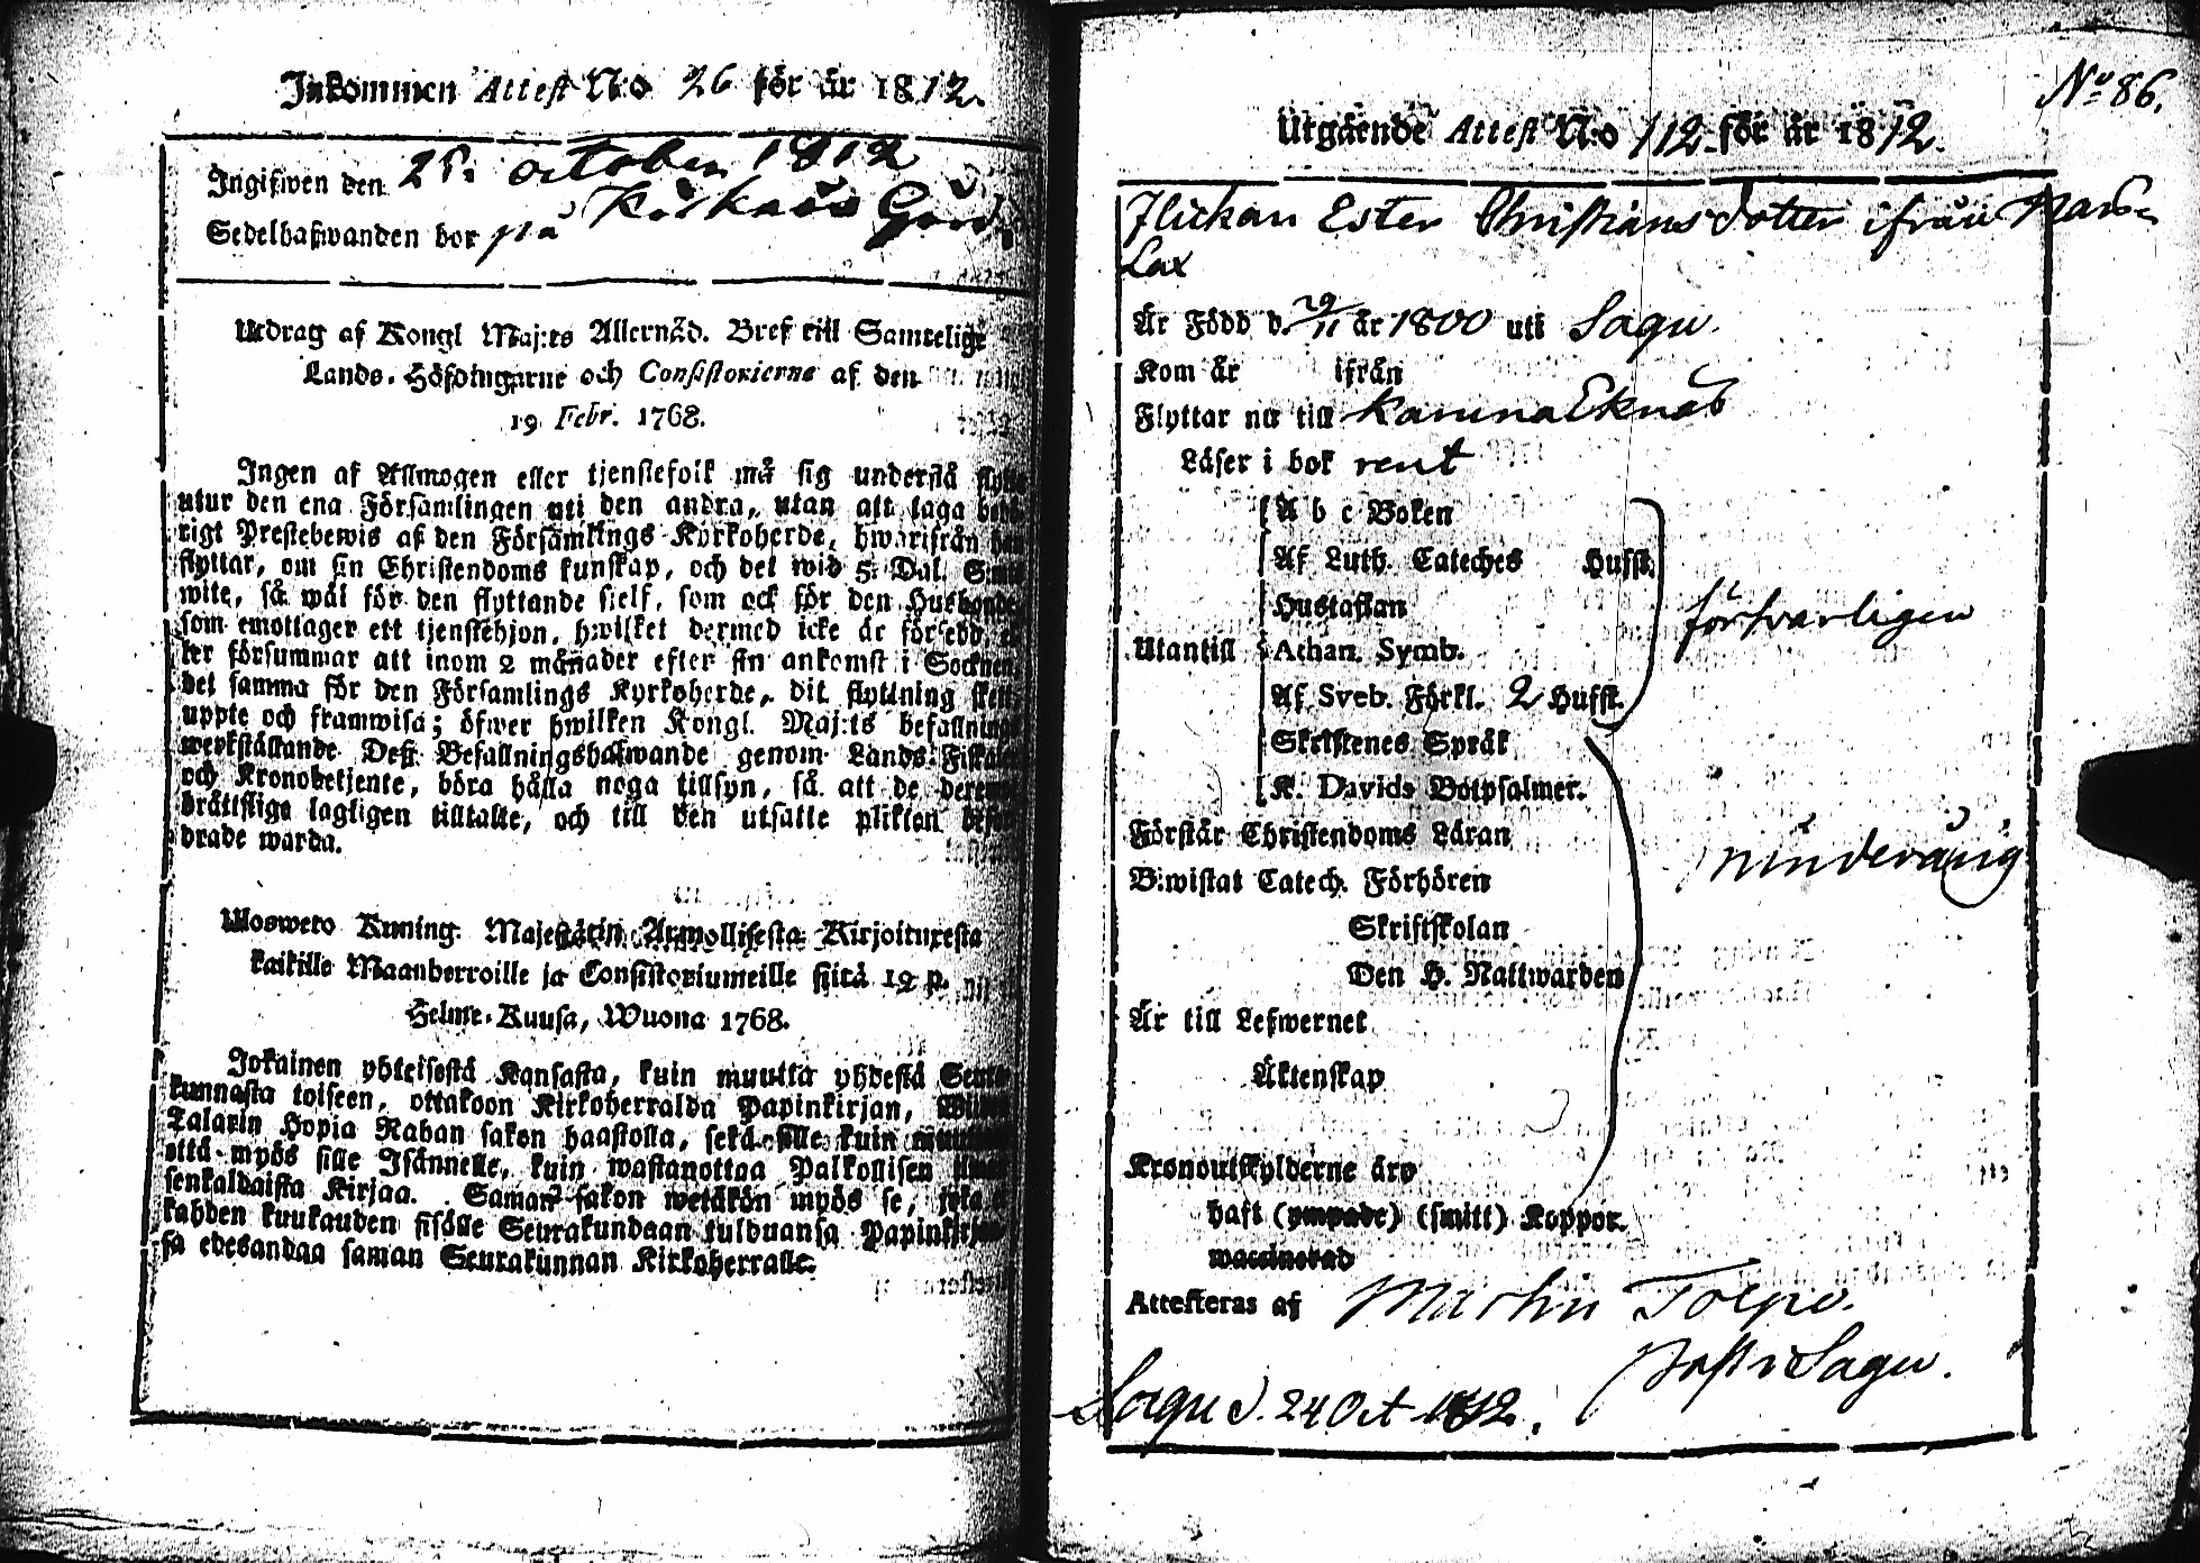 Inkommen Attest N:o 26 för år 1812.
Ingifwen den 28. october 1812
Sedelhafwanden bor på
Utdrag af Kongl Maj:ts Allernåd. Bref till Samtelige
Lands-Höfdingarne och Consistorierne af den
19 Febr. 1768.
Ingen af Allmogen eller tjenstefolk må sig understå flytta
utur den ena Församlingen uti den andra, utan att taga behö-
rigt Prestebewis af den Församlings Kyrkoherde, hwarifrån han
flyttar, om sin Christendoms kunskap, och det wid 5. Dal. S:mts
wite, så wäl för den flyttande sielf, som ock för den Husbonde
som emottager ett tjenstehjon, hwilket dermed icke är försedd, el-
ler försummar att inom 2 månader efter sin ankomst i Socknen
det samma för den Församlings Kyrkoherde, dit flyttning skett,
uppte och framwisa; öfwer hwilken Kongl. Maj:ts befallnings
werkställande Deß Befallningshafwande genom Lands-Fiskaler
och Kronobetjente, böra hålla noga tillsyn, så att de deremot
bråttslige lagligen tilltalte, och till den utsatte plikten befor-
drade warda.
Ulosweto Kuning. Majestätin Armollisesta Kirjoituxesta
kaikille Maanherroille ja Consistoriumeille siitä 19 p.
Helme-Kuusa, Wuona 1768.
Jokainen yhteisestä Kansasta, kuin muutta yhdestä Seura-
kunnasta toiseen, ottakoon Kirkoherralda Papinkirjan, Wiiden
Talarin Hopia Rahan sakon haastolla, sekä sille kuin muutta
että myös sille Isännelle, kuin wastanottaa Palkollisen ilman
senkaldaista Kirjaa. Saman sakon wetäkön myös se, joka ei
kahden kuukauden sisälle Seurakundaan tulduansa Papinkirjaan-
sa edesandaa saman Seurakunnan Kirkoherralle.
No 86.
Utgående Attest N:o 112 för år 1812.
Flickan Ester Christians dotter ifrån
Lax
Är Född d. 29/11 år 1800 uti Sagu.
Kom år ifrån
Flyttar nu till Karuna Eknäs
Läser i bok rent
A b c Boken
Af Luth. Cateches Hufst.
Hustaflan
förswarligen
Utantill Athan. Symb.
Af Sveb. Förkl. 2 Hufst.
Skriftenes Språk
K. Davids Botpsalmer.
Förstår Christendoms Läran
minderårig
B:wistat Catech. Förhören
Skriftskolan
Den H. Nattwarden
Är till Lefwernet
Äktenskap
Kronoutskylderne äro
haft (ympade) (smitt) Koppor.
waccinerad
Attesteras af Martin Tolpo.
Past i Sagu.
Sagu d. 24 Oct 1812.